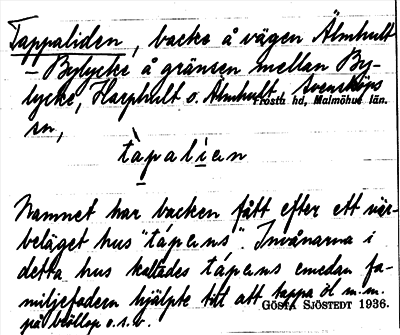 Tappaliden, backe å vägen Älmhult
– Bylycke å gränsen mellan By-
lycke, Harphult o. Älmhult, Svensköps
sn,
Frosta hd, Malmöhus län.
tàpalían
Namnet har backen fått efter ett när-
beläget hus "tápans". Invånarna i
detta hus kallades tápans emedan fa-
miljefadern hjälpte till att tappa öl m.m.
på bröllop o.s.v.
GÖSTA SJÖSTEDT 1936.